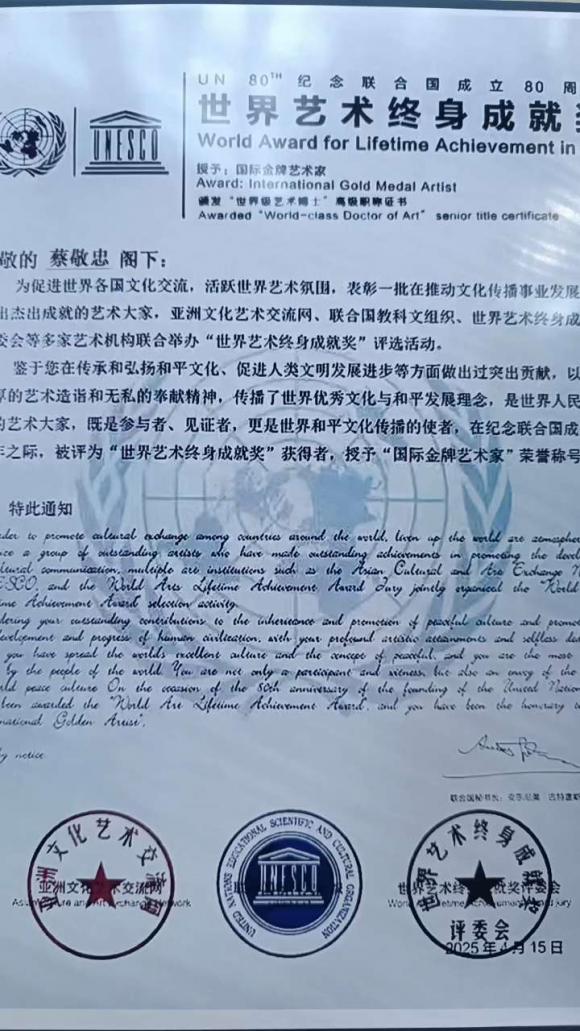 UN 80TH 纪念联合国成立80周
世界艺术终身成就奖
World Award for Lifetime Achievement in
UNESCO
授予：国际金牌艺术家
Award: International Gold Medal Artist
颁发“世界级艺术博士”高级职称证书
Awarded "World-class Doctor of Art" senior title certificate
敬的 蔡敬忠 阁下：
为促进世界各国文化交流，活跃世界艺术氛围，表彰一批在推动文化传播事业发展
出杰出成就的艺术大家，亚洲文化艺术交流网、联合国教科文组织、世界艺术终身成
委会等多家艺术机构联合举办“世界艺术终身成就奖”评选活动。
鉴于您在传承和弘扬和平文化、促进人类文明发展进步等方面做出过突出贡献，以
厚的艺术造诣和无私的奉献精神，传播了世界优秀文化与和平发展理念，是世界人民
的艺术大家，既是参与者、见证者，更是世界和平文化传播的使者，在纪念联合国成
年之际，被评为“世界艺术终身成就奖”获得者，授予“国际金牌艺术家”荣誉称号
特此通知
to promote cultural exchange among countries around the world, up the world
a group of outstanding artists who have made outstanding achievements in promoting the
communication, multiple are institutions such as the Asian Cultural and Exchange
and the World Arts Lifetime Achievement Award Jury jointly organized the "World
Achievement Award selection activity.
your outstanding contributions to the inheritance and promotion of peaceful culture and
and progress of human civilization, with your profound artistic and selfless
you have spread the world's excellent culture and the concept of peaceful, and you are the most
by the people of the world. You are not only a participant and witness, but also an envoy of the
peace culture On the occasion of the 80th anniversary of the founding of the United
been awarded the "World Art Lifetime Achievement Award, and you have been the honorary
Golden
notice
联合国秘书长：
亚洲文化艺术交流网
UNITED NATIONS EDUCATIONAL SCIENTIFIC AND CULTURAL ORGANIZATION
UNESCO
世界艺术终身成就奖
评委会
亚洲文化艺术交流网
世界艺术终身成就奖评委会
2025年4月15日